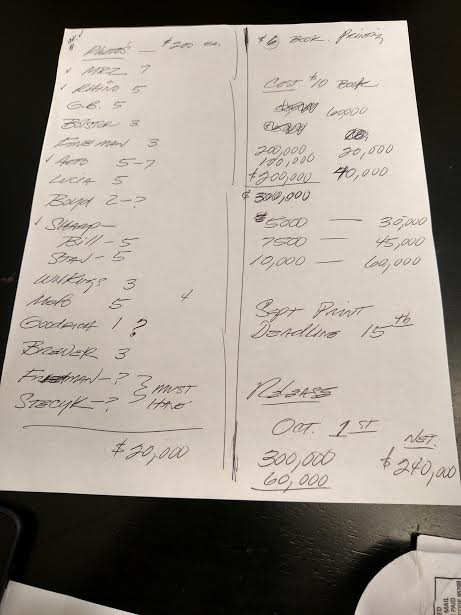 PHOTOS — $200 EA.
✓ MRZ. 7
✓ RHINO 5
G.B. 5
BOLSTER 3
FINEMAN 3
✓ AUTO 5-7
LUCIA 5
BOYD 2-?
✓ SHARP—
BILL - 5
STAN - 5
WILKINGS 3
MOFO 5 4
GOODRICH 1 ?
BREWER 3
FRIEDMAN-? } MUST
STECYK-? } HAVE
$20,000
$6 BOOK PRINTING
COST $10 BOOK
60000
200,000 20,000
100,000
$200,000 40,000
$300,000
$5000 — 30,000
7500 — 45,000
10,000 — 60,000
SEPT PRINT
DEADLINE 15th
RELEASE
OCT. 1ST
NET.
300,000 $240,000
60,000
ED
MAIL
PAID